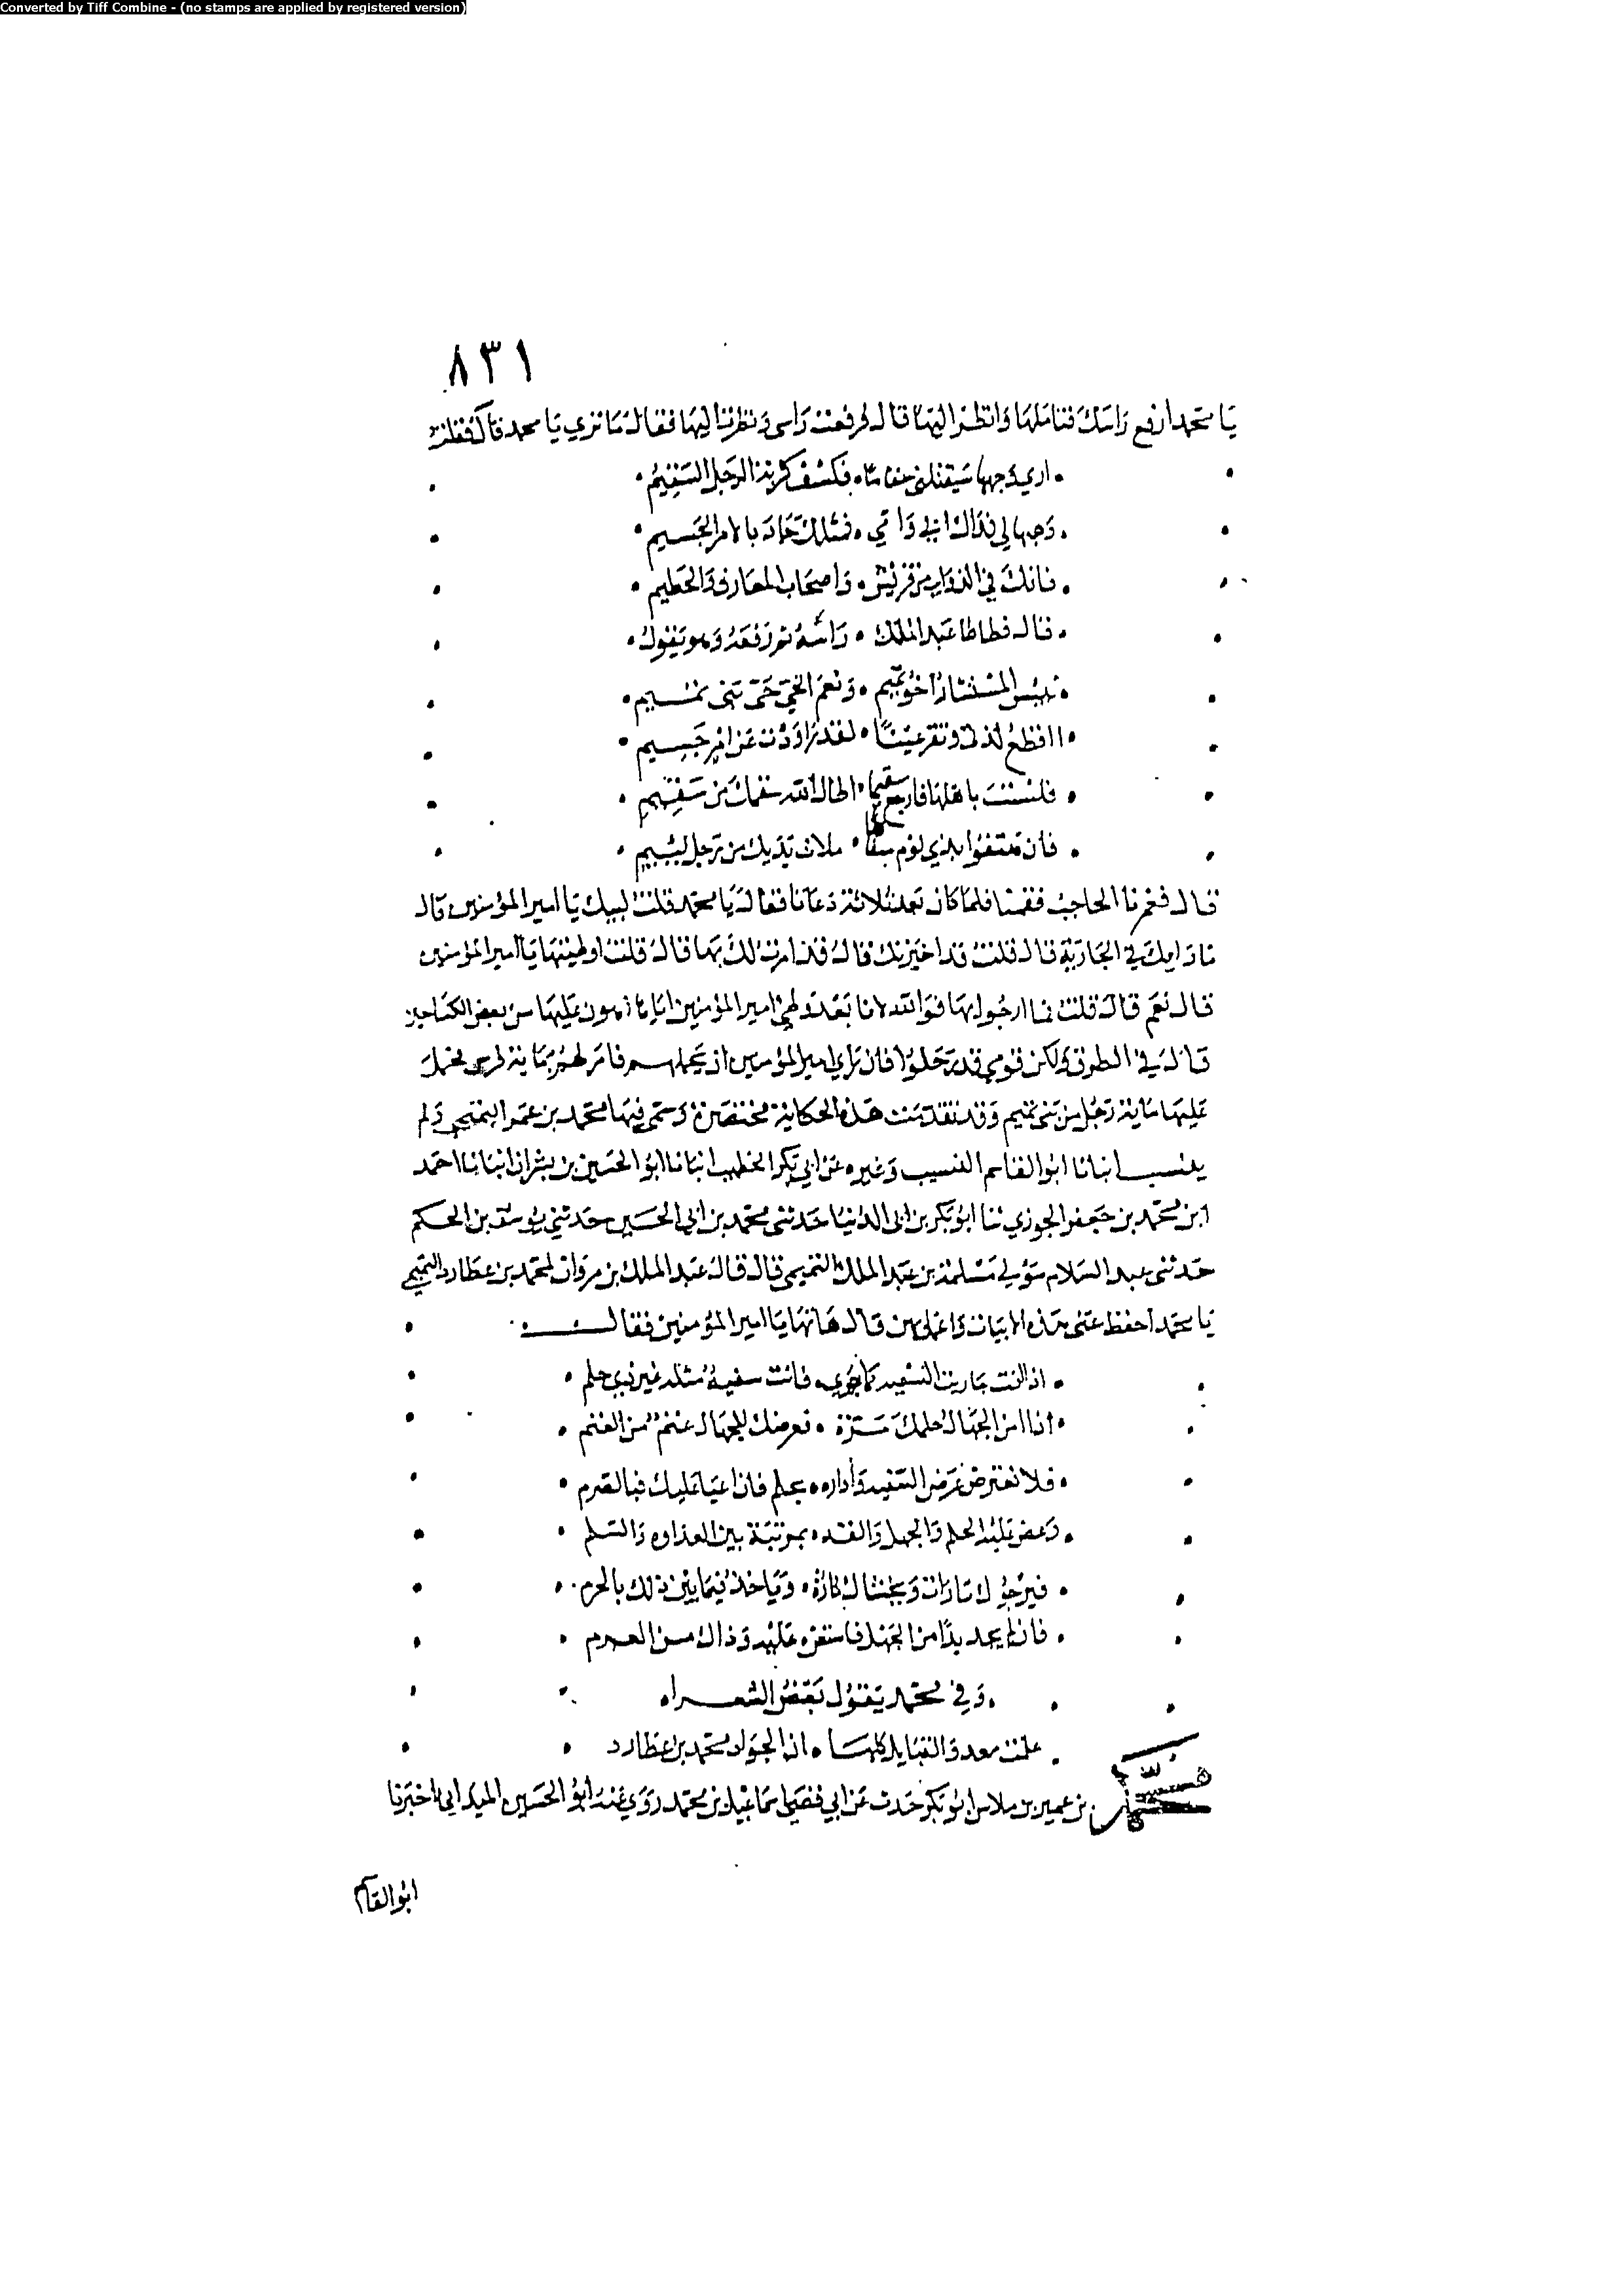 Converted by Tiff Combine - (no stamps are applied by registered version)
٨٣١
يا محمد ارفع راسك فتاملها وانظر اليها قال فرفعت راسي ونظرت اليها فقال ما تري يا محمد قال فقلت
اري وجهها سيقتلني فكشف كربة الرجل السقيم
وجهها لي فداك ابي وامي فمثلك جاد بالامر الجسيم
فانك في الذوايب من قريش واصحاب المعارف والحطيم
قال فطاطا عبد الملك راسه ثم رفعه وهو يقول
لبيس المستشار اخو تميم ونعم الحي حي بني تميم
ااقطع لذتي وتقر عينا لقد راودت عن امر جسيم
فلست باهلها فارجع سقيما اطال الله سقمك من سقيم
فان تعتفوا بذي لوم ملات يديك من رجل لييم
قال فغمزنا الحاجب فقمنا فلما كان بعد ثلاثة دعانا فقال يا محمد قلت لبيك يا امير المومنين قال
ما رايك في الجارية قال قلت قد اخبرتك قال قد امرت لك بها قال قلت اوطيتها يا امير المومنين
قال نعم قال قلت فما ارجو بها فوالله لانا بعد وطي امير المومنين اياها اهون عليها من بعض الكساحين
قال في الطرق ولكن قومي قد رحلوا فان راي امير المومنين ان يحملهم فامر لهم بماية فرس فحمل
عليها ماية رجل من بني تميم وقد تقدمت هذه الحكاية مختصرة وسمي فيها محمد بن عمر التميمي ولم
ينسب انبانا ابو القاسم النسيب وغيره عن ابي بكر الخطيب انبانا ابو الحسين بن بشران انبانا احمد
ابن محمد بن جعفر الجوزي ثنا ابو بكر بن ابي الدنيا حدثني محمد بن ابي الحسين حدثني يوسف بن الحكم
حدثني عبد السلام مولي مسلمة بن عبد الملك التميمي قال قال عبد الملك بن مروان لمحمد بن عطارد التميمي
يا محمد احفظ عني هذه الابيات واعمل بهن قال هاتها يا امير المومنين فقال
اذا انت جاريت السفيه كما جري فانت سفيه مثله غير ذي حلم
اذا امن الجهال حلمك مرة فعرضك للجهال غنم من الغنم
فلا تعترض عرض السفيه واداره بحلم فان اعيا عليك فبالصرم
وعض عليه الحلم والجهل والقه بمرتبة بين العداوه والسلم
فيرجوك تارات ويخشاك تارة وياخذ فيما بين ذلك بالحزم
فان لم يجد بدا من الجهل فاستعن عليه وذاك من العزم
وفي محمد يقول بعض الشعراء
علمت معد والقبايل كلها ان الجواد محمد بن عطارد
بن عمير بن ملاس ابو بكر حدث عن ابي قصي اسماعيل بن محمد روي عنه ابو الحسين الميداني اخبرنا
ابو القاسم